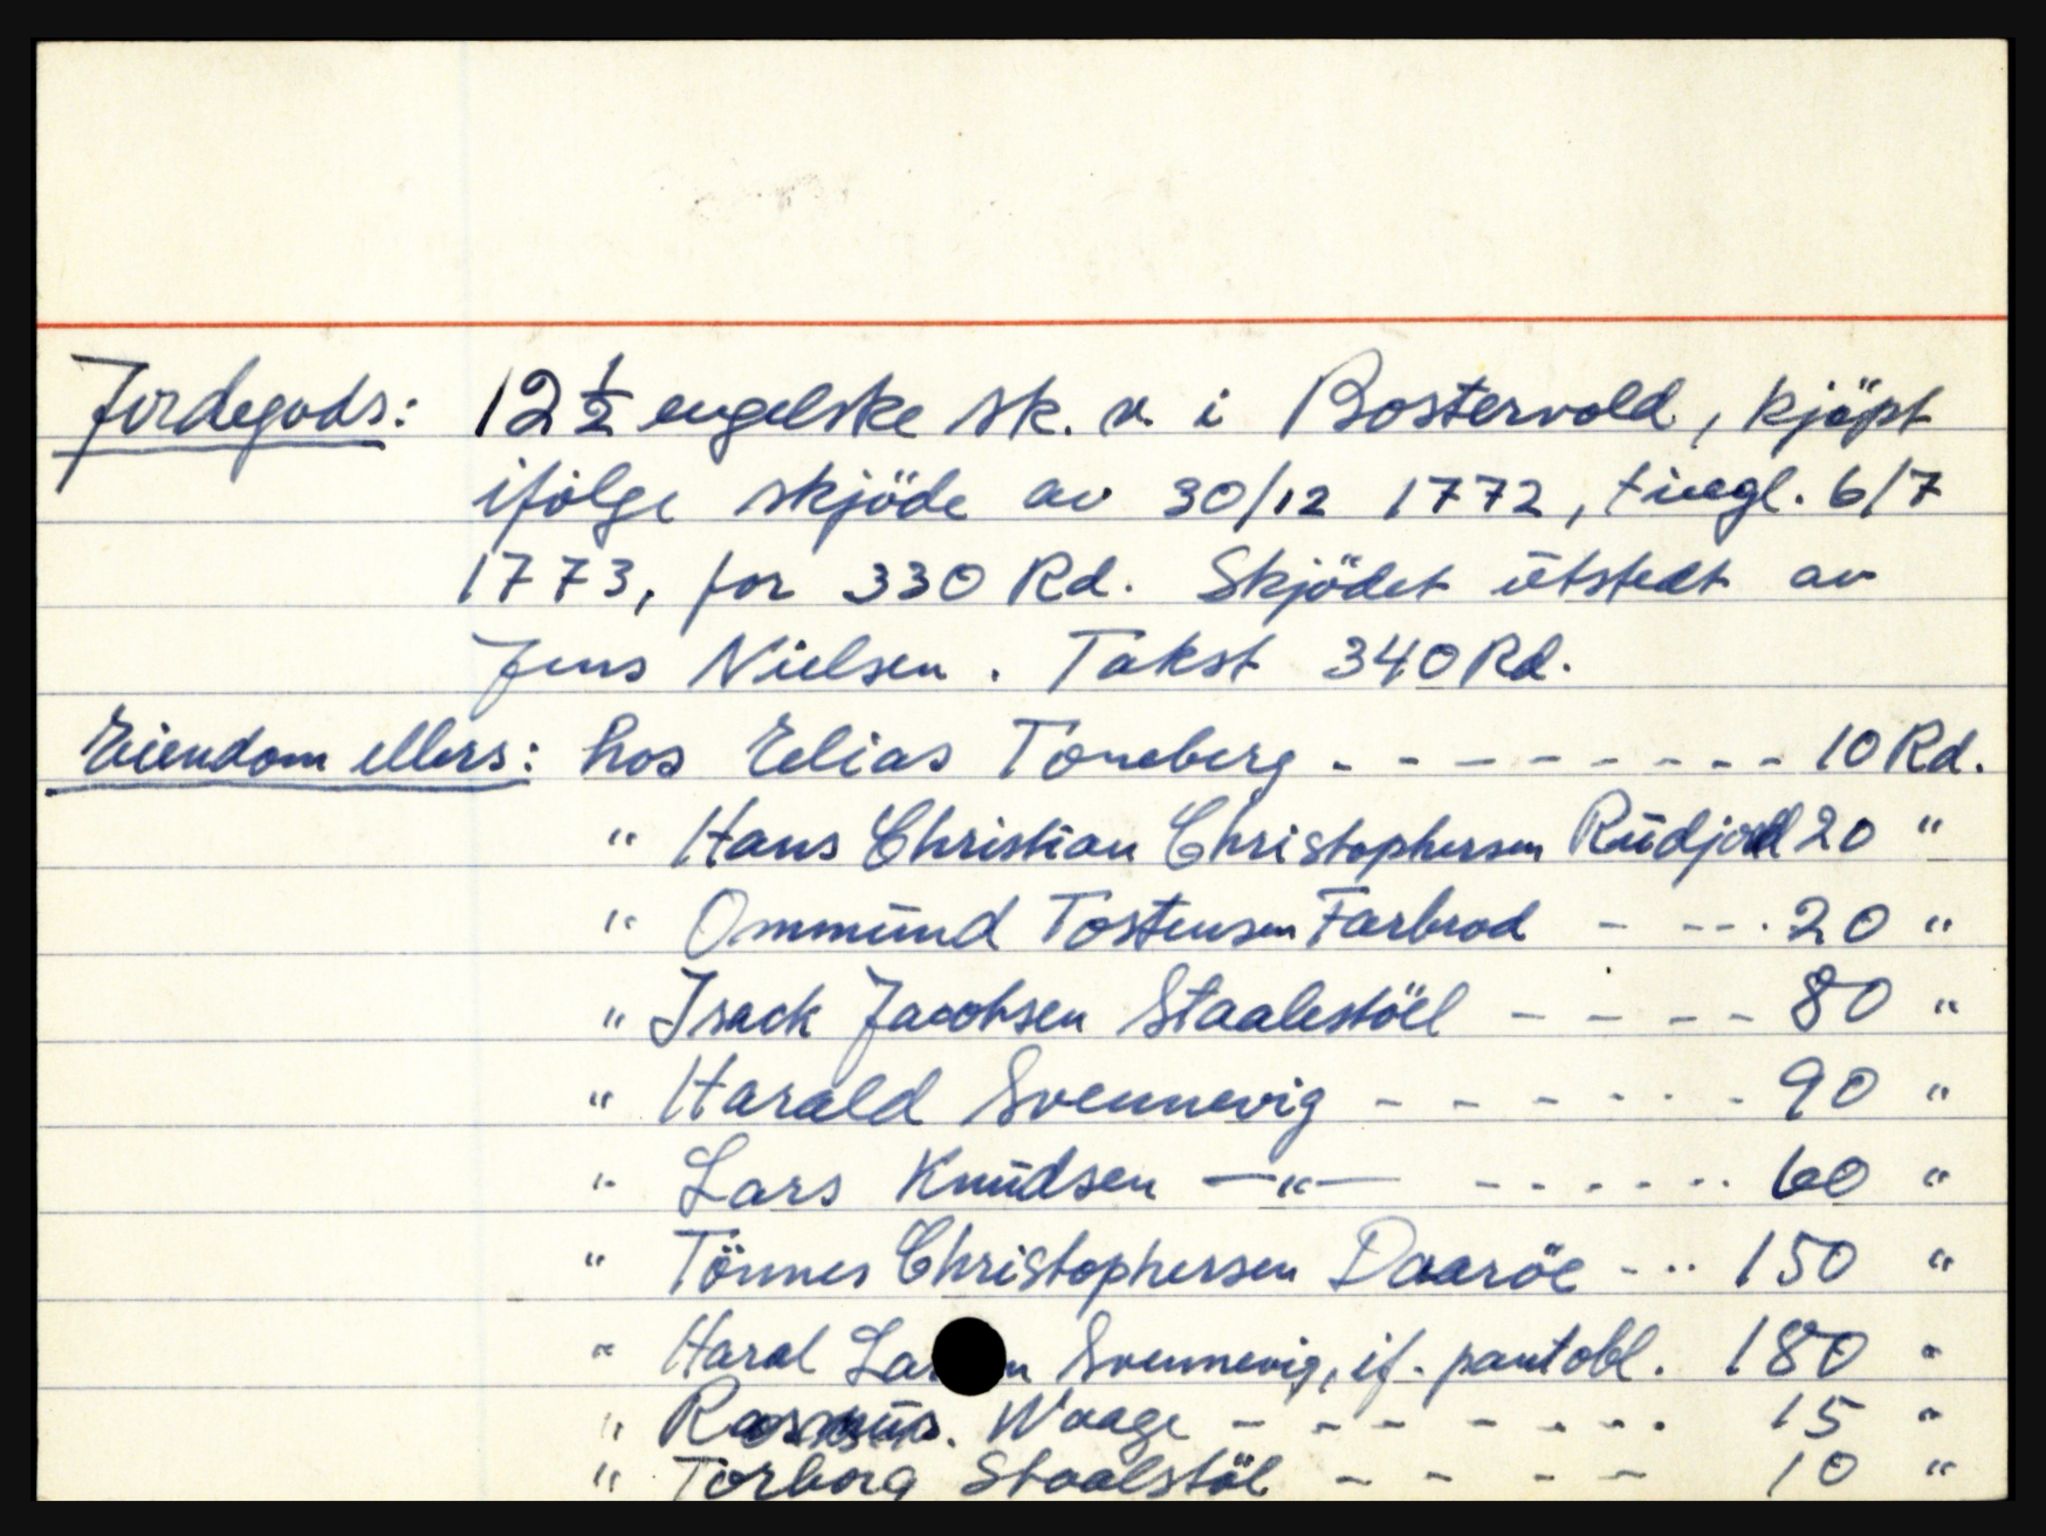 Jordegods: 12 1/2 engelske sk. i Bostervold, kjöpt
ifölge skjöde av 30/12 1772, tingl. 6/7
1773, for 330 Rd. Skjödet ūtstedt av
Jens Nielsen. Takst 340 Rd.
Eiendom ellers: hos Elias Toneberg - - - - - - - - - 10 Rd.
" Hans Christian Christophersen Rūdjord 20 "
" Ommūnd Tostensen Farbrod - - - - 20 "
" Isack Jacobsen Staalestöel - - - - 80 "
" Harald Svennevig - - - - - - - 90 "
" Lars Knūdsen —"— - - - - - - 60 "
" Tönnes Christophersen Daaröe - - - 150 "
" Haral Svennevig, if. pantobl. 180 "
" Rasmūs. Waage - - - - - - - 15 "
" Torborg Staalstöl - - - - 10 "